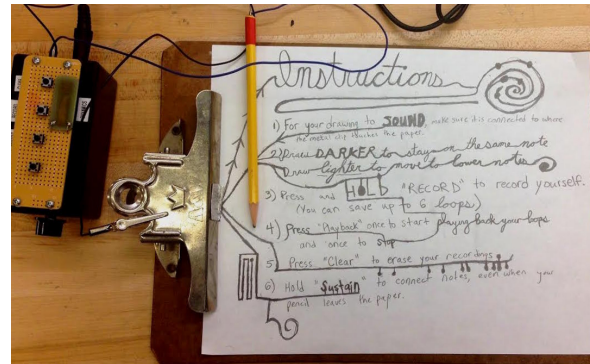 Instructions
1) For your drawing to SOUND, make sure it is connected to where
the metal clip touches the paper.
2) Draw DARKER to stay on the same note
Draw lighter to move to lower notes
3) Press and HOLD "RECORD" to record yourself.
(You can save up to 6 loops)
4) Press "Playback" once to start playing back your loops
and once to stop
5) Press "Clear" to erase your recordings
6) Hold "Sustain" to connect notes, even when your
pencil leaves the paper.